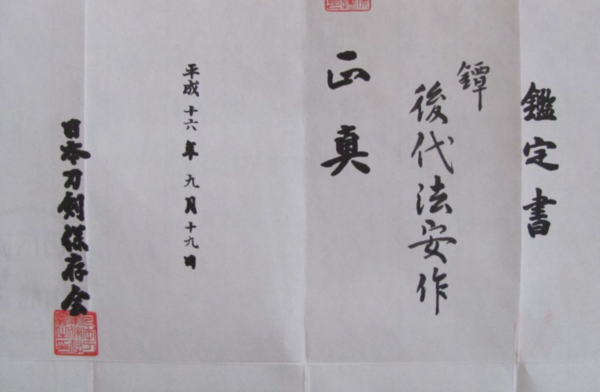 鑑定書
鐔
後代法安作
正真
平成十六年九月十九日
日本刀剣保存会